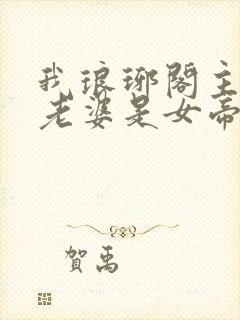 我琅琊阁主
老婆是女帝
賀禹